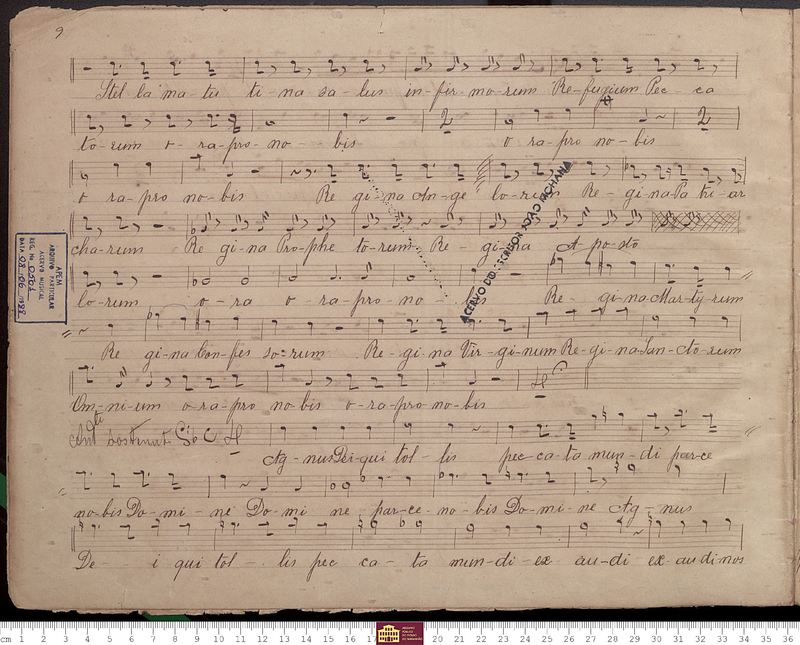 9
Stel-la ma-tu ti-na sa-lus in-fir-mo-rum Re-fugium Pec-ca
to-rum o-ra-pro-no-bis o ra-pro no-bis
o ra-pro no-bis Re gi-na An-ge lo-rum Re-gi-na Pa tri-ar
cha-rum Re gi-na Pro-phe to-rum Re-gi-na A po-sto
lo-rum o-ra o-ra-pro-no- Re-gi-na Mar-ty-rum
Re gi-na Con-fes so-rum Re-gi na Vir-gi-num Re-gi-na San-cto-rum
Om-ni-um o-ra-pro no-bis o-ra-pro no-bis
Ag-nus Dei-qui tol-lis pec-ca-ta mun-di par-ce
no-bis Do-mi-ne Do-mi ne par-ce-no-bis Do-mi-ne Ag-nus
De-i qui tol-lis pec ca-ta mun-di-ex au-di-ex-au di nos
APEM
ARQUIVO PARTICULAR
ACERVO MUSICAL
REG. Nº 0501
DATA 08.06.1988
ACERVO DO ESCRITOR JOÃO MOHANA
cm 1 2 3 4 5 6 7 8 9 10 11 12 13 14 15 16 17 20 21 22 23 24 25 26 27 28 29 30 31 32 33 34 35 36